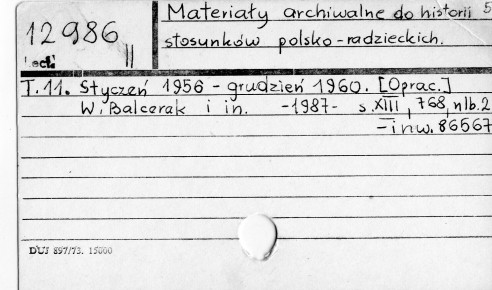 Materiały archiwalne do historii 5
12986 stosunków polsko-radzieckich.
II
T.11. Styczeń 1956 - grudzień 1960. [Oprac.]
W. Balcerak i in. -1987- s. XIII, 768, nlb. 2
- inw. 86567
DUJ 897/73. 15000